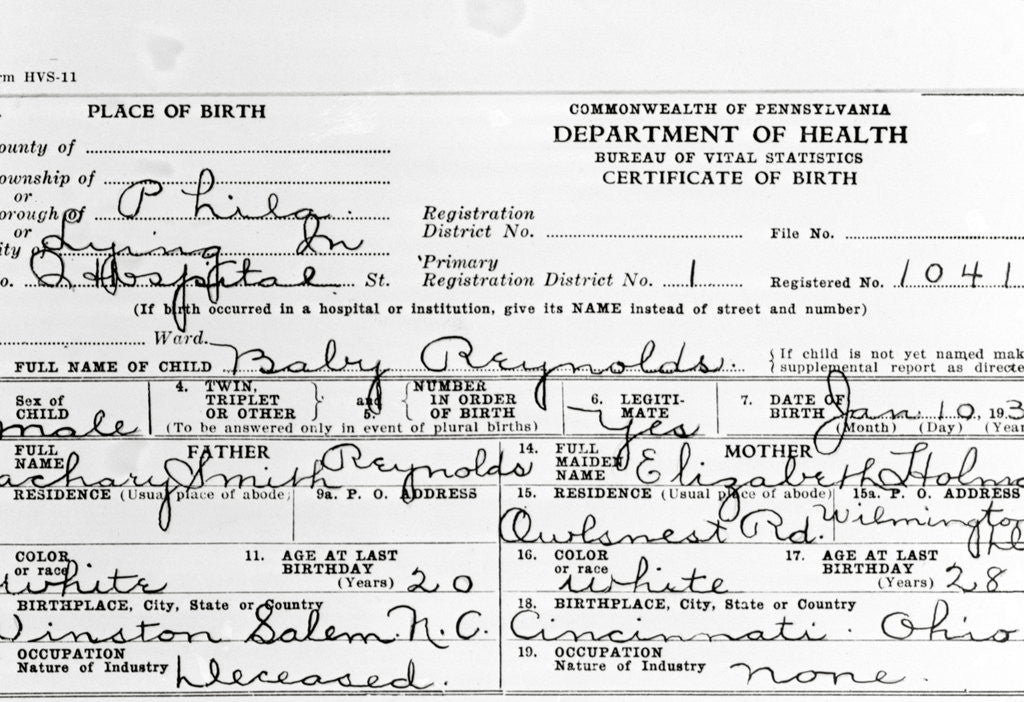 rm HVS-11
PLACE OF BIRTH
COMMONWEALTH OF PENNSYLVANIA
DEPARTMENT OF HEALTH
BUREAU OF VITAL STATISTICS
CERTIFICATE OF BIRTH
ounty of
ownship of
or
orough of Phila.
or
ity of Lying In
o. Hospital St.
Registration
District No. File No.
Primary
Registration District No. 1 Registered No. 1041
(If birth occurred in a hospital or institution, give its NAME instead of street and number)
Ward.
FULL NAME OF CHILD Baby Reynolds.
If child is not yet named mak
supplemental report as directe
Sex of
CHILD
male
4. TWIN,
TRIPLET
OR OTHER
and
5.
NUMBER
IN ORDER
OF BIRTH
(To be answered only in event of plural births)
6. LEGITI-
MATE
Yes
7. DATE OF
BIRTH Jan. 10, 193
(Month) (Day) (Year
FULL
NAME
FATHER
achary Smith Reynolds
14. FULL
MAIDEN
NAME
MOTHER
Elizabeth Holma
RESIDENCE (Usual place of abode)
9a. P. O. ADDRESS
15. RESIDENCE (Usual place of abode)
15a. P. O. ADDRESS
Owlsnest Rd. Wilmington
De
COLOR
or race
white
11. AGE AT LAST
BIRTHDAY
(Years) 20
16. COLOR
or race
white
17. AGE AT LAST
BIRTHDAY
(Years) 28
BIRTHPLACE, City, State or Country
Winston Salem. N.C.
18. BIRTHPLACE, City, State or Country
Cincinnati. Ohio
OCCUPATION
Nature of Industry Deceased.
19. OCCUPATION
Nature of Industry none.